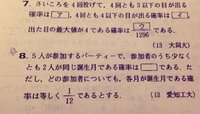 7. さいころを4回投げて，4回とも3以下の目が出る
確率は ア ，4回とも4以下の目が出る確率は イ ，
出た目の最大値が4である確率は ウ/1296 である．
(13 大同大)
8. 5人が参加するパーティーで，参加者のうち少なく
とも2人が同じ誕生月である確率は□である．た
だし，どの参加者についても，各月が誕生月である確
率は等しく 1/12 であるとする． (13 愛知工大)